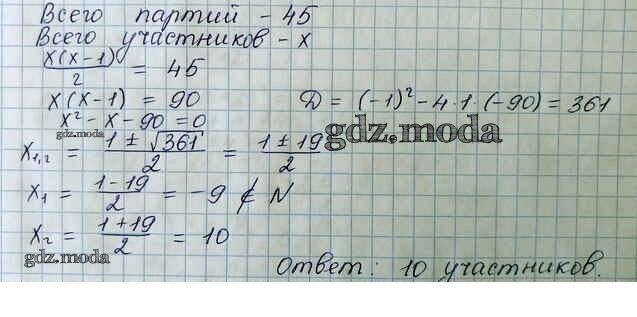 Всего партий - 45
Всего участников - x
x(x-1)/2 = 45
x(x-1) = 90
D = (-1)² - 4·1·(-90) = 361
x² - x - 90 = 0
gdz.moda
x₁,₂ = (1 ± √361)/2 = (1 ± 19)/2
gdz.moda
x₁ = (1-19)/2 = -9 ∉ N
x₂ = (1+19)/2 = 10
gdz.moda
Ответ: 10 участников.